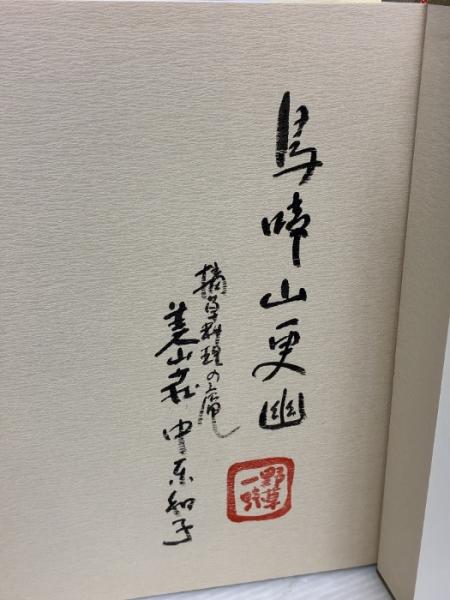 鳥啼山更幽
摘草料理の庵
美山荘 中東和子
野草一味